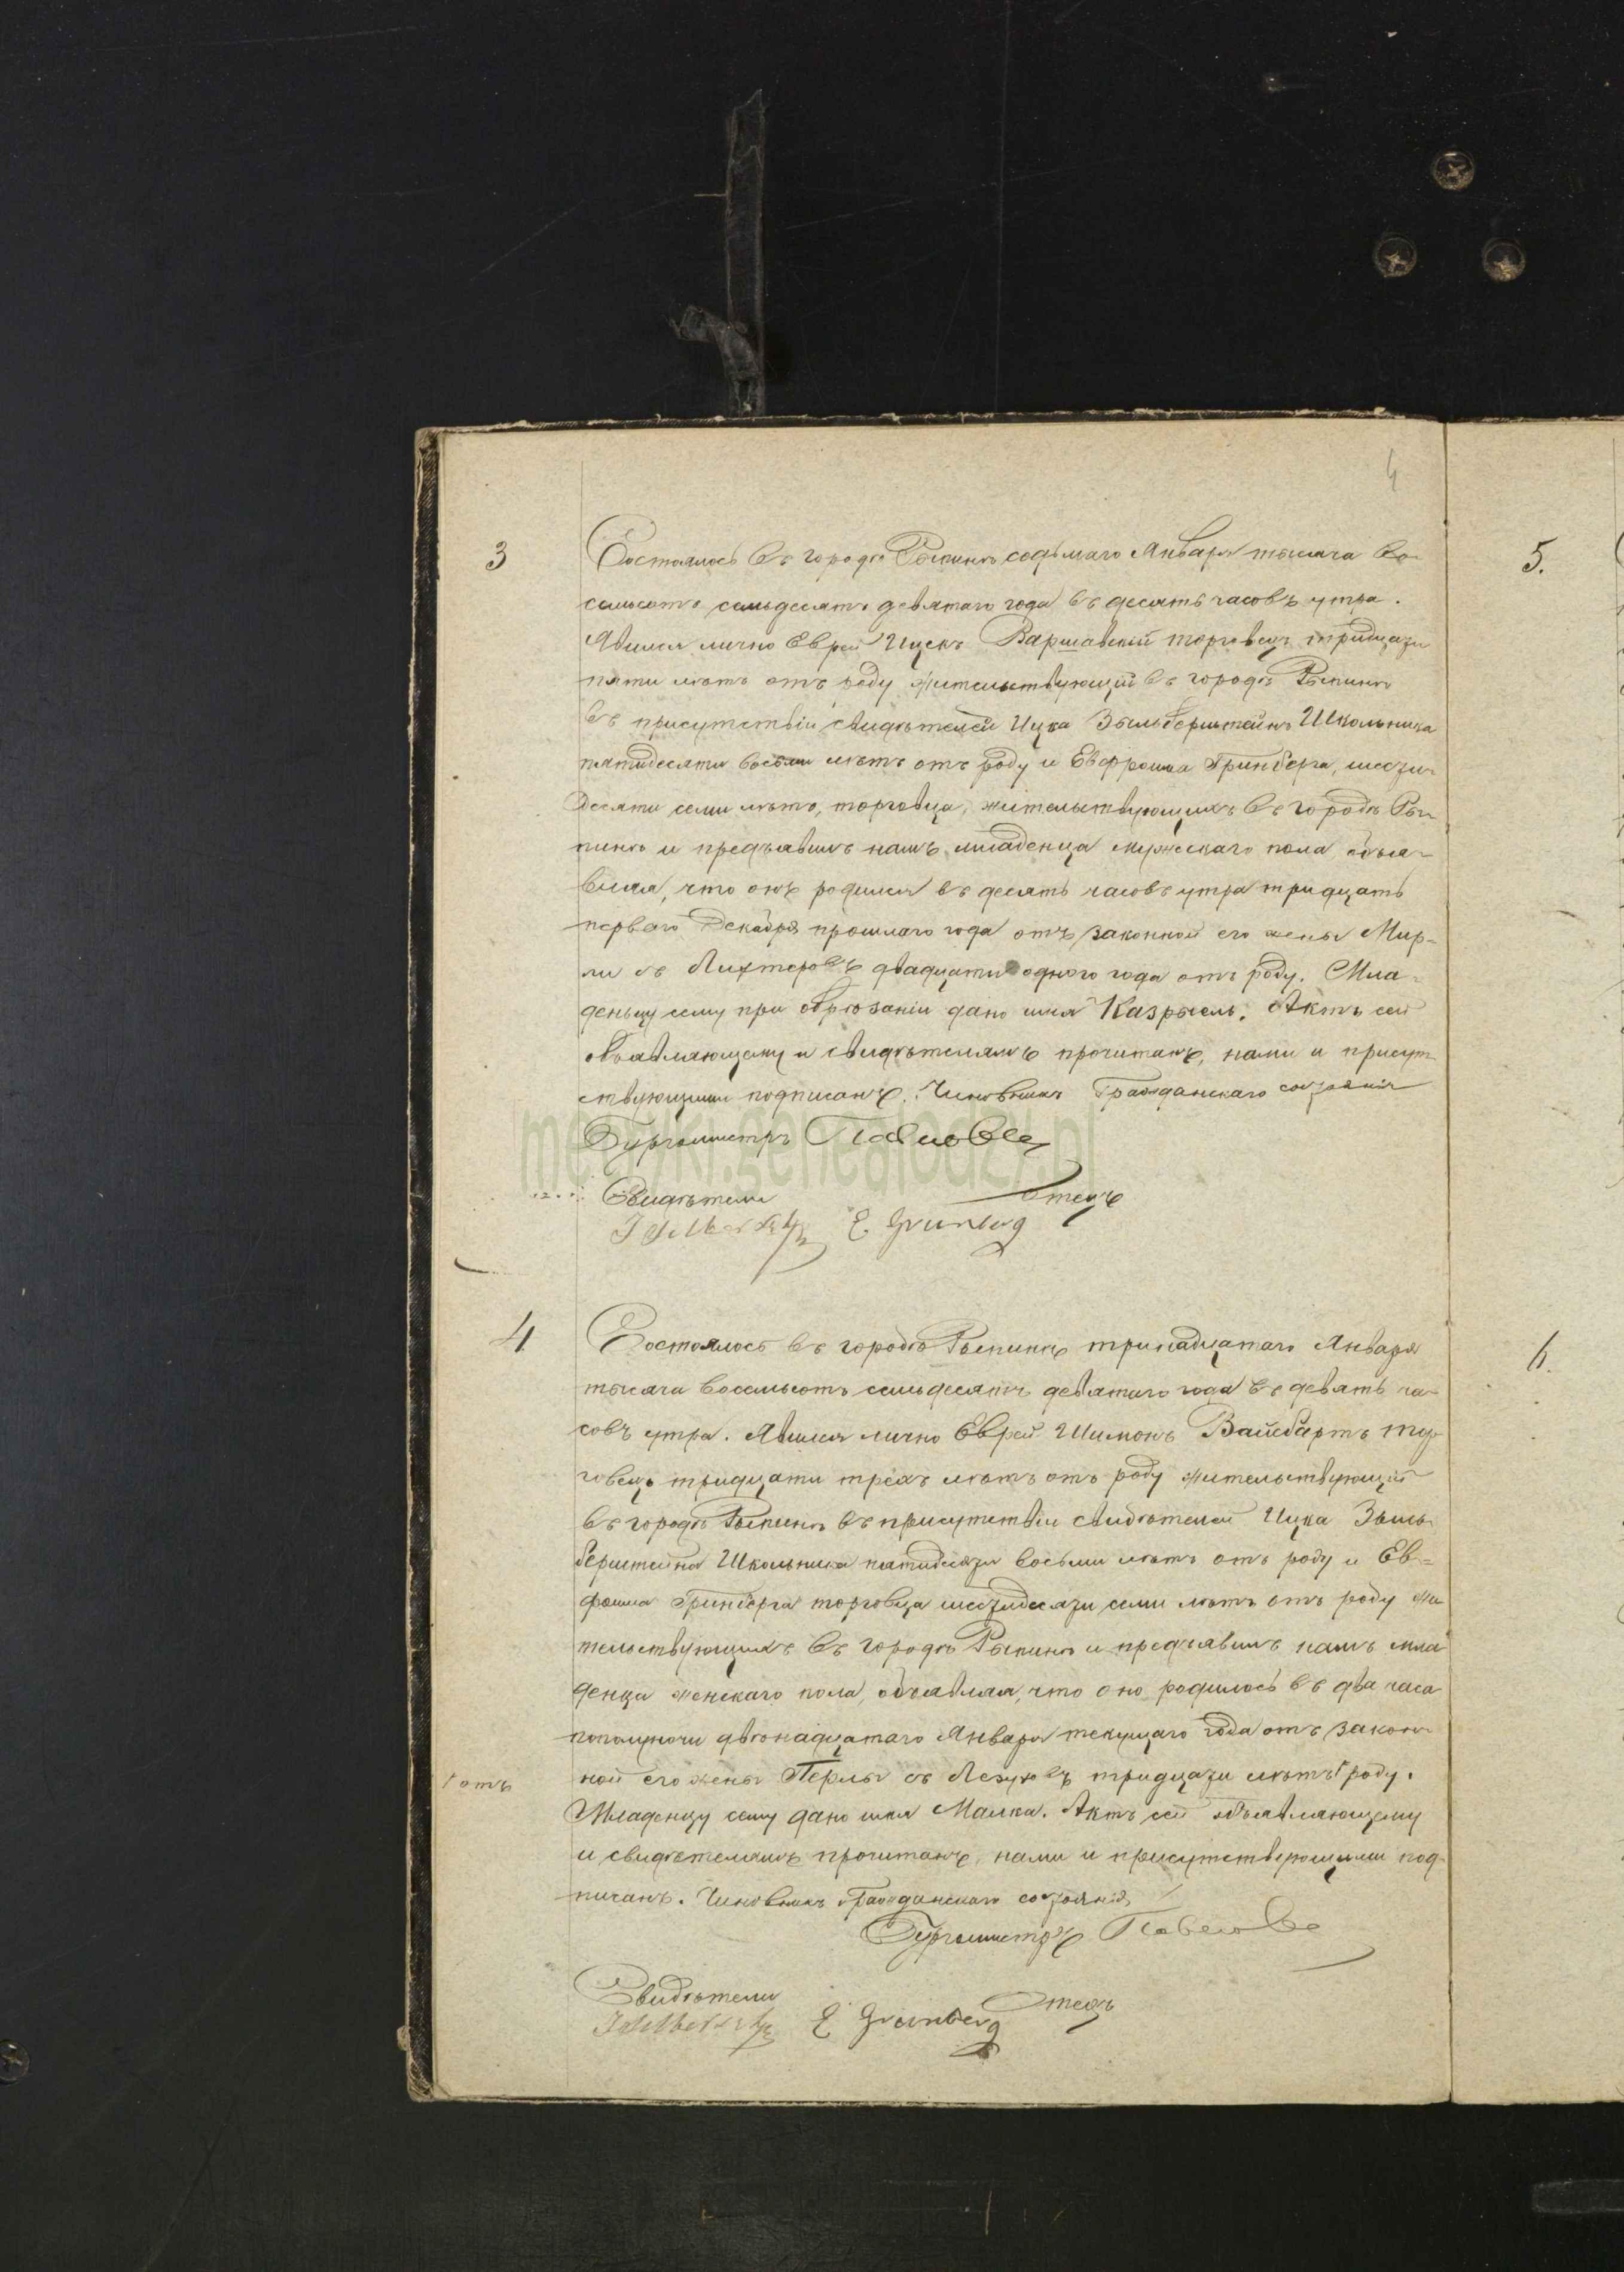 4
3
Состоялось въ городѣ Рыпинѣ седьмаго Января тысяча во-
семьсотъ семьдесятъ девятаго года въ десять часовъ утра.
Явился лично Еврей Ицекъ Варшавскій торговецъ тридцати
пяти лѣтъ отъ роду жительствующій въ городѣ Рыпинѣ
въ присутствіи свидѣтелей Ицка Зыльберштейнъ Школьника
пятидесяти восьми лѣтъ отъ роду и Гринберга, шести-
десяти семи лѣтъ, торговца, жительствующихъ въ городѣ Ры-
пинѣ и предъявилъ намъ младенца мужескаго пола объя-
вляя, что онъ родился въ десять часовъ утра тридцать
перваго Декабря прошлаго года отъ законной его жены Мир-
ли съ Лихтеровъ двадцати одного года отъ роду. Мла-
денцу сему при обрѣзаніи дано имя Казрыель. Актъ сей
объявляющему и свидѣтелямъ прочитанъ, нами и присут-
ствующими подписанъ. Чиновникъ Гражданскаго состоянія
Бургомистръ
metryki.genealodzy.pl
Свидѣтели Отецъ
E. Grunberg
4
Состоялось въ городѣ Рыпинѣ тринадцатаго Января
тысяча восемьсотъ семьдесятъ девятаго года въ девять ча-
совъ утра. Явился лично Еврей Шимонъ Вайсбартъ тор-
говецъ тридцати трехъ лѣтъ отъ роду жительствующій
въ городѣ Рыпинѣ въ присутствіи свидѣтелей Ицка Зыль-
берштейна Школьника пятидесяти восьми лѣтъ отъ роду и Ев-
Гринберга торговца шестидесяти семи лѣтъ отъ роду жи-
тельствующихъ въ городѣ Рыпинѣ и предъявилъ намъ мла-
денца женскаго пола, объявляя, что оно родилось въ два часа
пополуночи двѣнадцатаго Января текущаго года отъ закон-
ной его жены Перлы съ тридцати лѣтъ Г роду.
Г отъ
Младенцу сему дано имя Малка. Актъ сей объявляющему
и свидѣтелямъ прочитанъ, нами и присутствующими под-
писанъ. Чиновникъ Гражданскаго состоянія
Бургомистръ
Свидѣтели Отецъ
E Grunberg
5.
6.